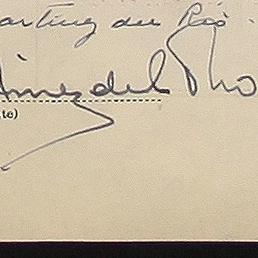 artinez del Rio.
inez del Rio
te)